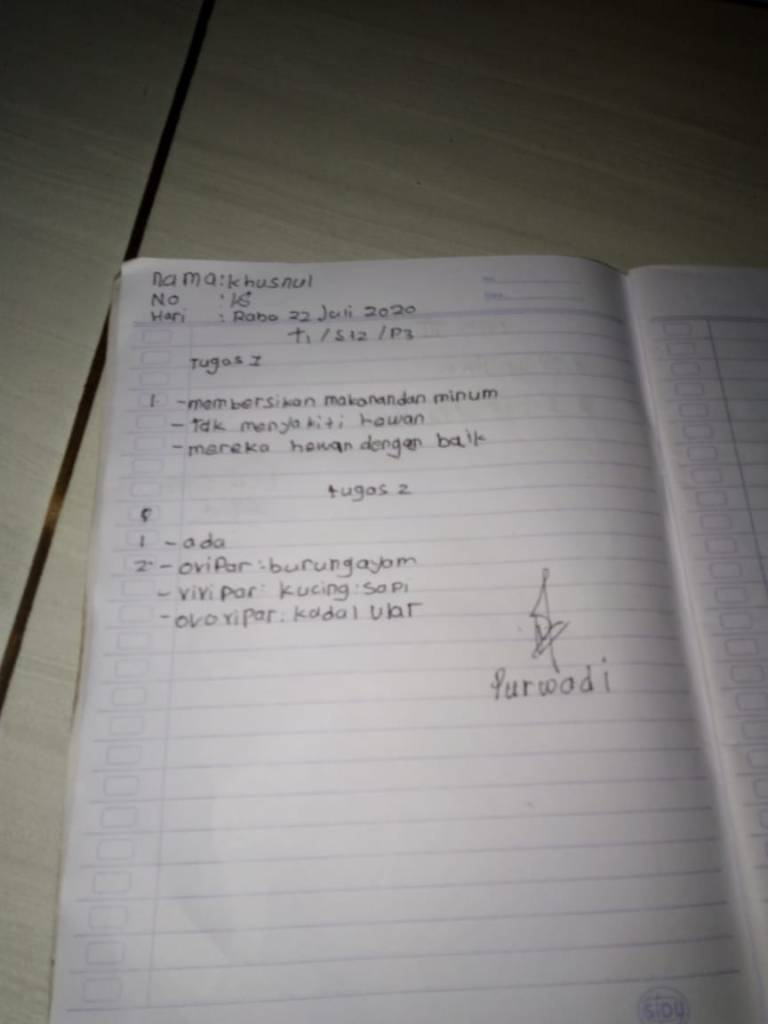 nama: khusnul
No :
Hari : Rabo 22 Juli 2020
T1 / S12 / P3
Tugas I
1. - membersikan makanandan minum
- tdk menyakiti hewan
- mereka hewan dengan baik
tugas 2
1 - ada
2. - ovipar : burung ayam
- vivi par : kucing : sapi
- ovovipar : kadal ular
Purwadi
SIDU